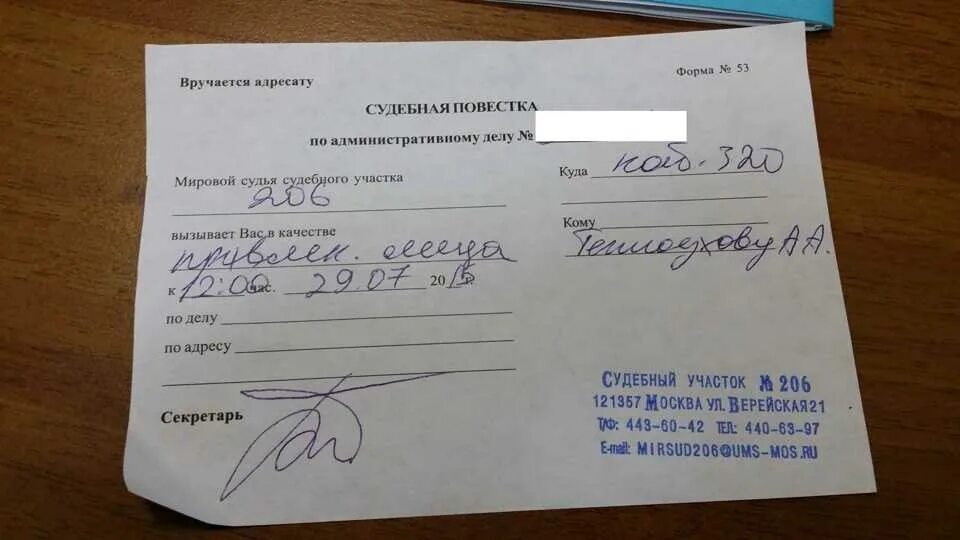 Вручается адресату
Форма № 53
СУДЕБНАЯ ПОВЕСТКА
по административному делу №
Мировой судья судебного участка
206
вызывает Вас в качестве
привлек. лица
к 12:00 час. 29.07 2015.
по делу
по адресу
Секретарь
Куда каб. 320
Кому
Теплоухову А А.
СУДЕБНЫЙ УЧАСТОК № 206
121357 МОСКВА УЛ. ВЕРЕЙСКАЯ 21
Т/Ф: 443-60-42 ТЕЛ: 440-63-97
E-mail: MIRSUD206@UMS-MOS.RU